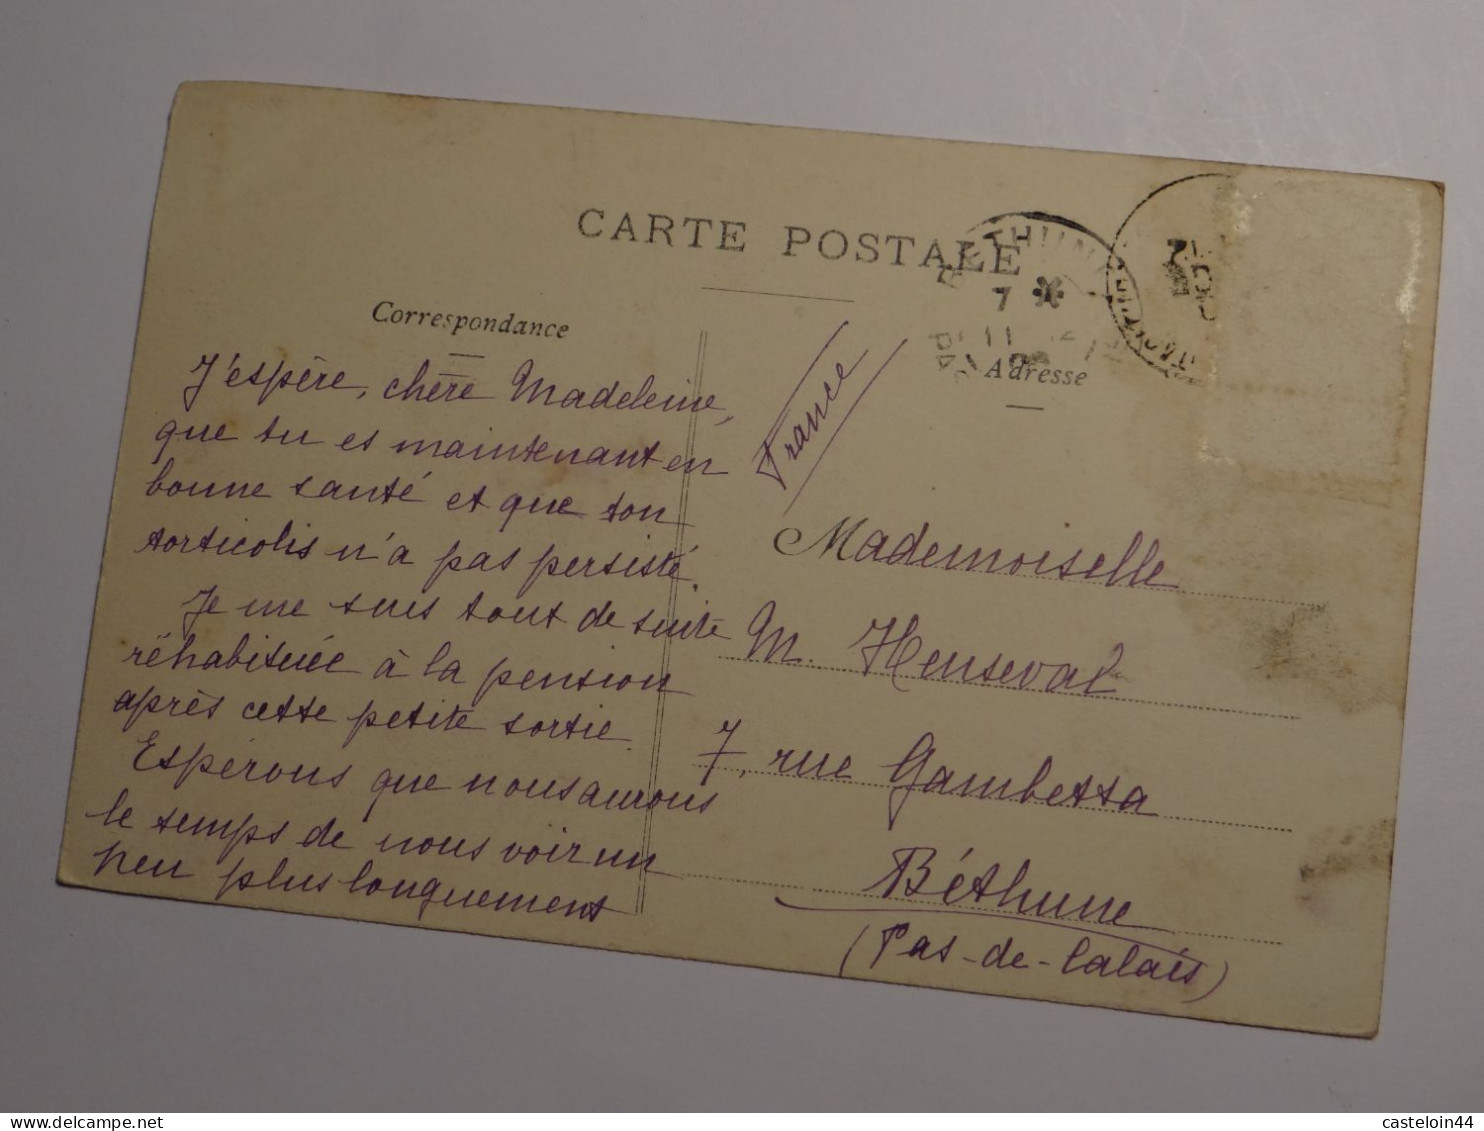 CARTE POSTALE
Correspondance
J'espère, chère Madeleine,
que tu es maintenant en
bonne santé et que ton
torticolis n'a pas persisté.
Je me suis tout de suite
réhabituée à la pension
après cette petite sortie.
Espérons que nous aurons
le temps de nous voir un
peu plus longuement
BETHUNE
7 *
11
PAS
Adresse
France
Mademoiselle
M. Henseval
7, rue Gambetta
Béthune
(Pas-de-Calais)
www.delcampe.net
casteloin44